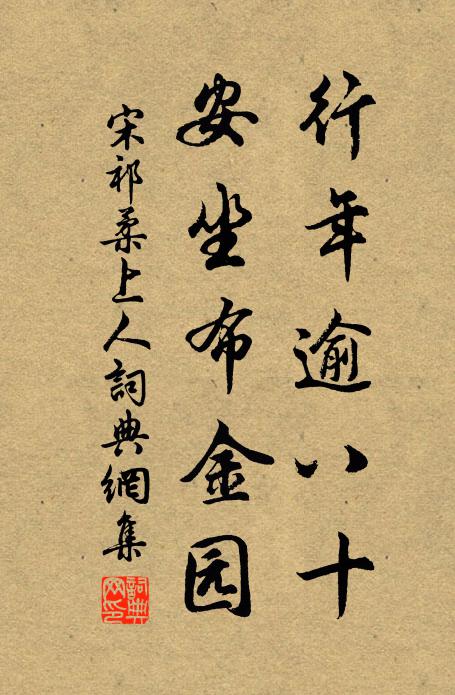 行年逾八十
安坐布金园
宋祁柔上人詞典網集
詞典网印